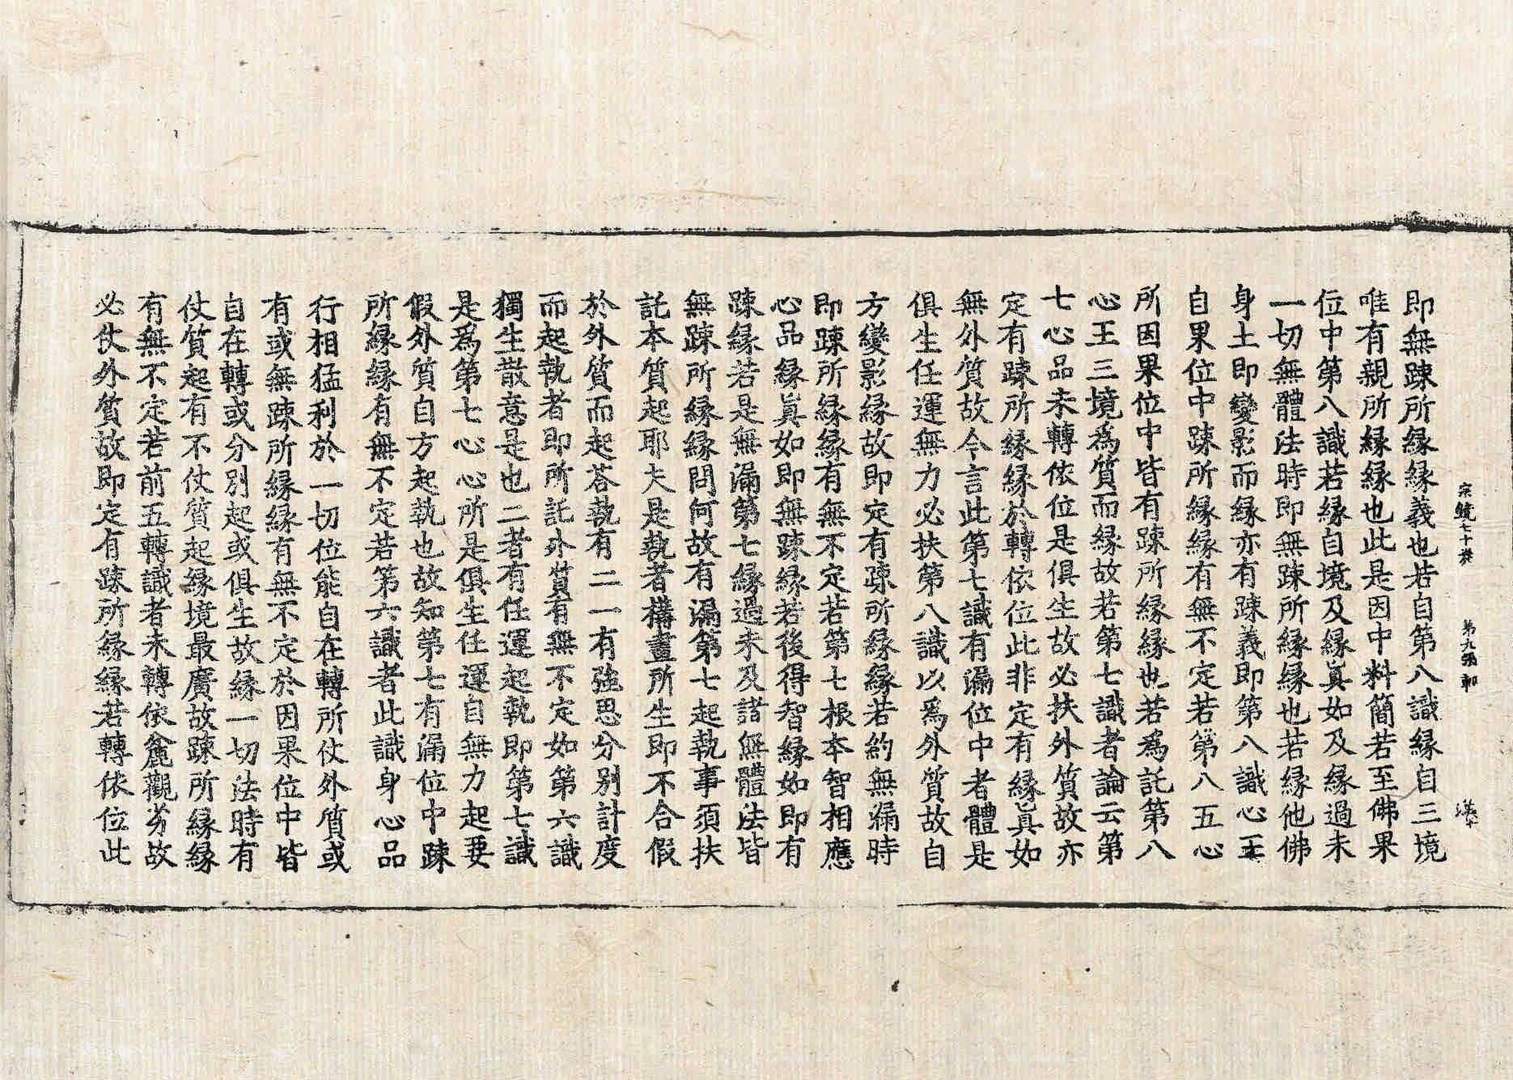 即無踈所縁縁義也若自第八識縁自三境
唯有親所縁縁也此是因中料簡若至佛果
位中第八識若縁自境及縁眞如及縁過未
一切無體法時即無踈所縁縁也若縁他佛
身土即變影而縁亦有踈義即第八識心王
自果位中踈所縁縁有無不定若第八五心
所因果位中皆有踈所縁縁也若爲託第八
心王三境爲質而縁故若第七識者論云第
七心品未轉依位是俱生故必扶外質故亦
定有踈所縁縁於轉依位此非定有縁眞如
無外質故今言此第七識有漏位中者體是
俱生任運無力必扶第八識以爲外質故自
方變影縁故即定有踈所縁縁若約無漏時
即踈所縁縁有無不定若第七根本智相應
心品縁眞如即無踈縁若後得智縁如即有
踈縁若是無漏第七縁過未及諸無體法皆
無踈所縁縁問何故有漏第七起執事須扶
託本質起耶夫是執者構畫所生即不合假
於外質而起荅執有二一有強思分别計度
而起執者即所託外質有無不定如第六識
獨生散意是也二者有任運起執即第七識
是爲第七心心所是俱生任運自無力起要
假外質自方起執也故知第七有漏位中踈
所縁縁有無不定若第六識者此識身心品
行相猛利於一切位能自在轉所仗外質或
有或無踈所縁縁有無不定於因果位中皆
自在轉或分别起或俱生故縁一切法時有
仗質起有不仗質起縁境最廣故踈所縁縁
有無不定若前五轉識者未轉依麁觀劣故
必仗外質故即定有踈所縁縁若轉依位此
宗鏡七十卷　第九張　郭
漢